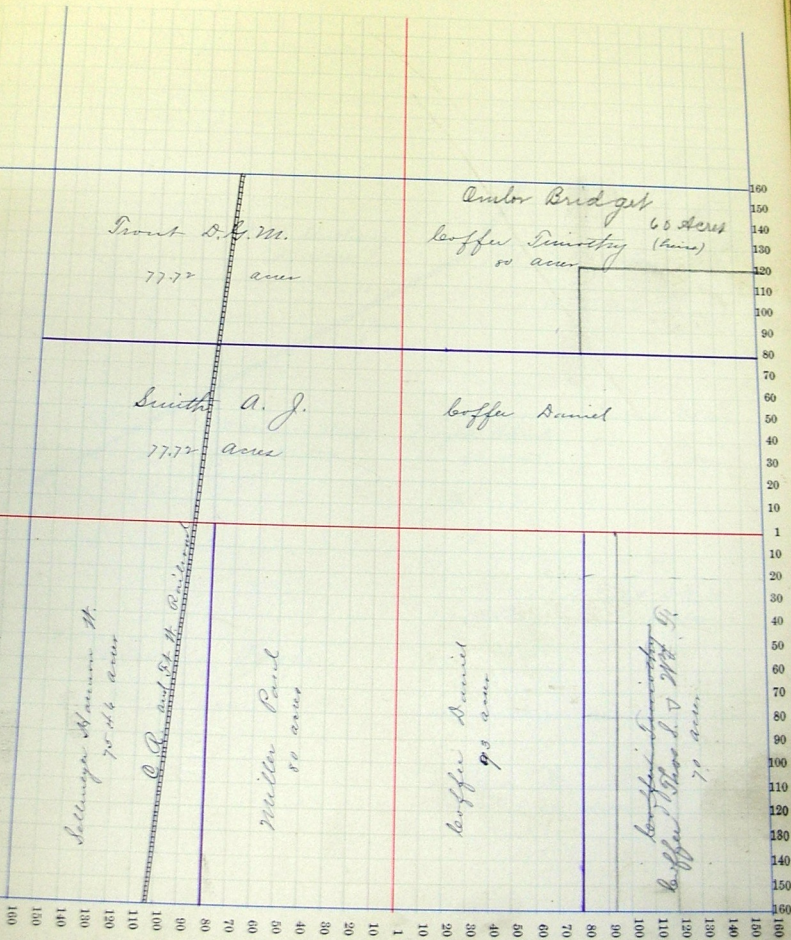 Omlor Bridget
60 Acres
Trout D. G. M.
77.72 acres
Coffee Timothy (heirs)
80 acres
Smith A. J.
77.72 acres
Coffee Daniel
Sellmeyer Harmon H.
75.46 acres
C. R. and Ft. W. Railroad
Miller Paul
80 acres
Coffee Daniel
93 acres
Coffee Timothy
Coffee Thos S. & Wd. T.
70 acres
160
150
140
130
120
110
100
90
80
70
60
50
40
30
20
10
1
10
20
30
40
50
60
70
80
90
100
110
120
130
140
150
160
160 150 140 130 120 110 100 90 80 70 60 50 40 30 20 10 1 10 20 30 40 50 60 70 80 90 100 110 120 130 140 150 160